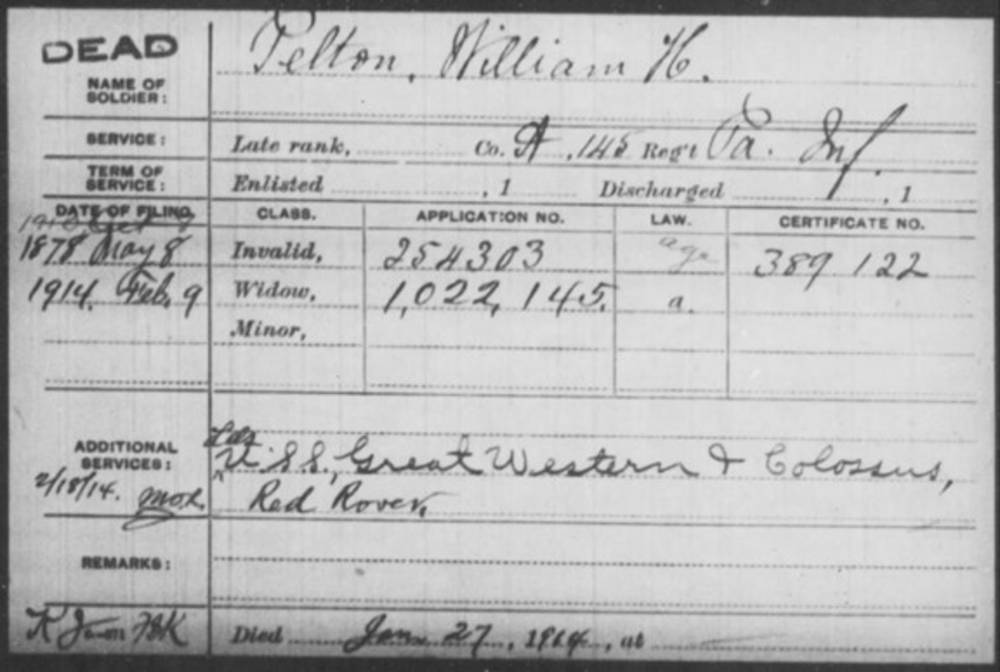 DEAD
Pelton, William H.
NAME OF
SOLDIER:
SERVICE: Late rank, Co. A, 145 Reg't Pa. Inf.
TERM OF
SERVICE: Enlisted , 1 Discharged , 1
DATE OF FILING. CLASS. APPLICATION NO. LAW. CERTIFICATE NO.
1878 May 8 Invalid, 254303 age 389 122
1914. Feb. 9 Widow, 1,022,145. a.
Minor,
ADDITIONAL
SERVICES: U.S.S., Great Western & Colossus,
2/18/14. Red Rover.
REMARKS:
Died Jan. 27, 1914, at